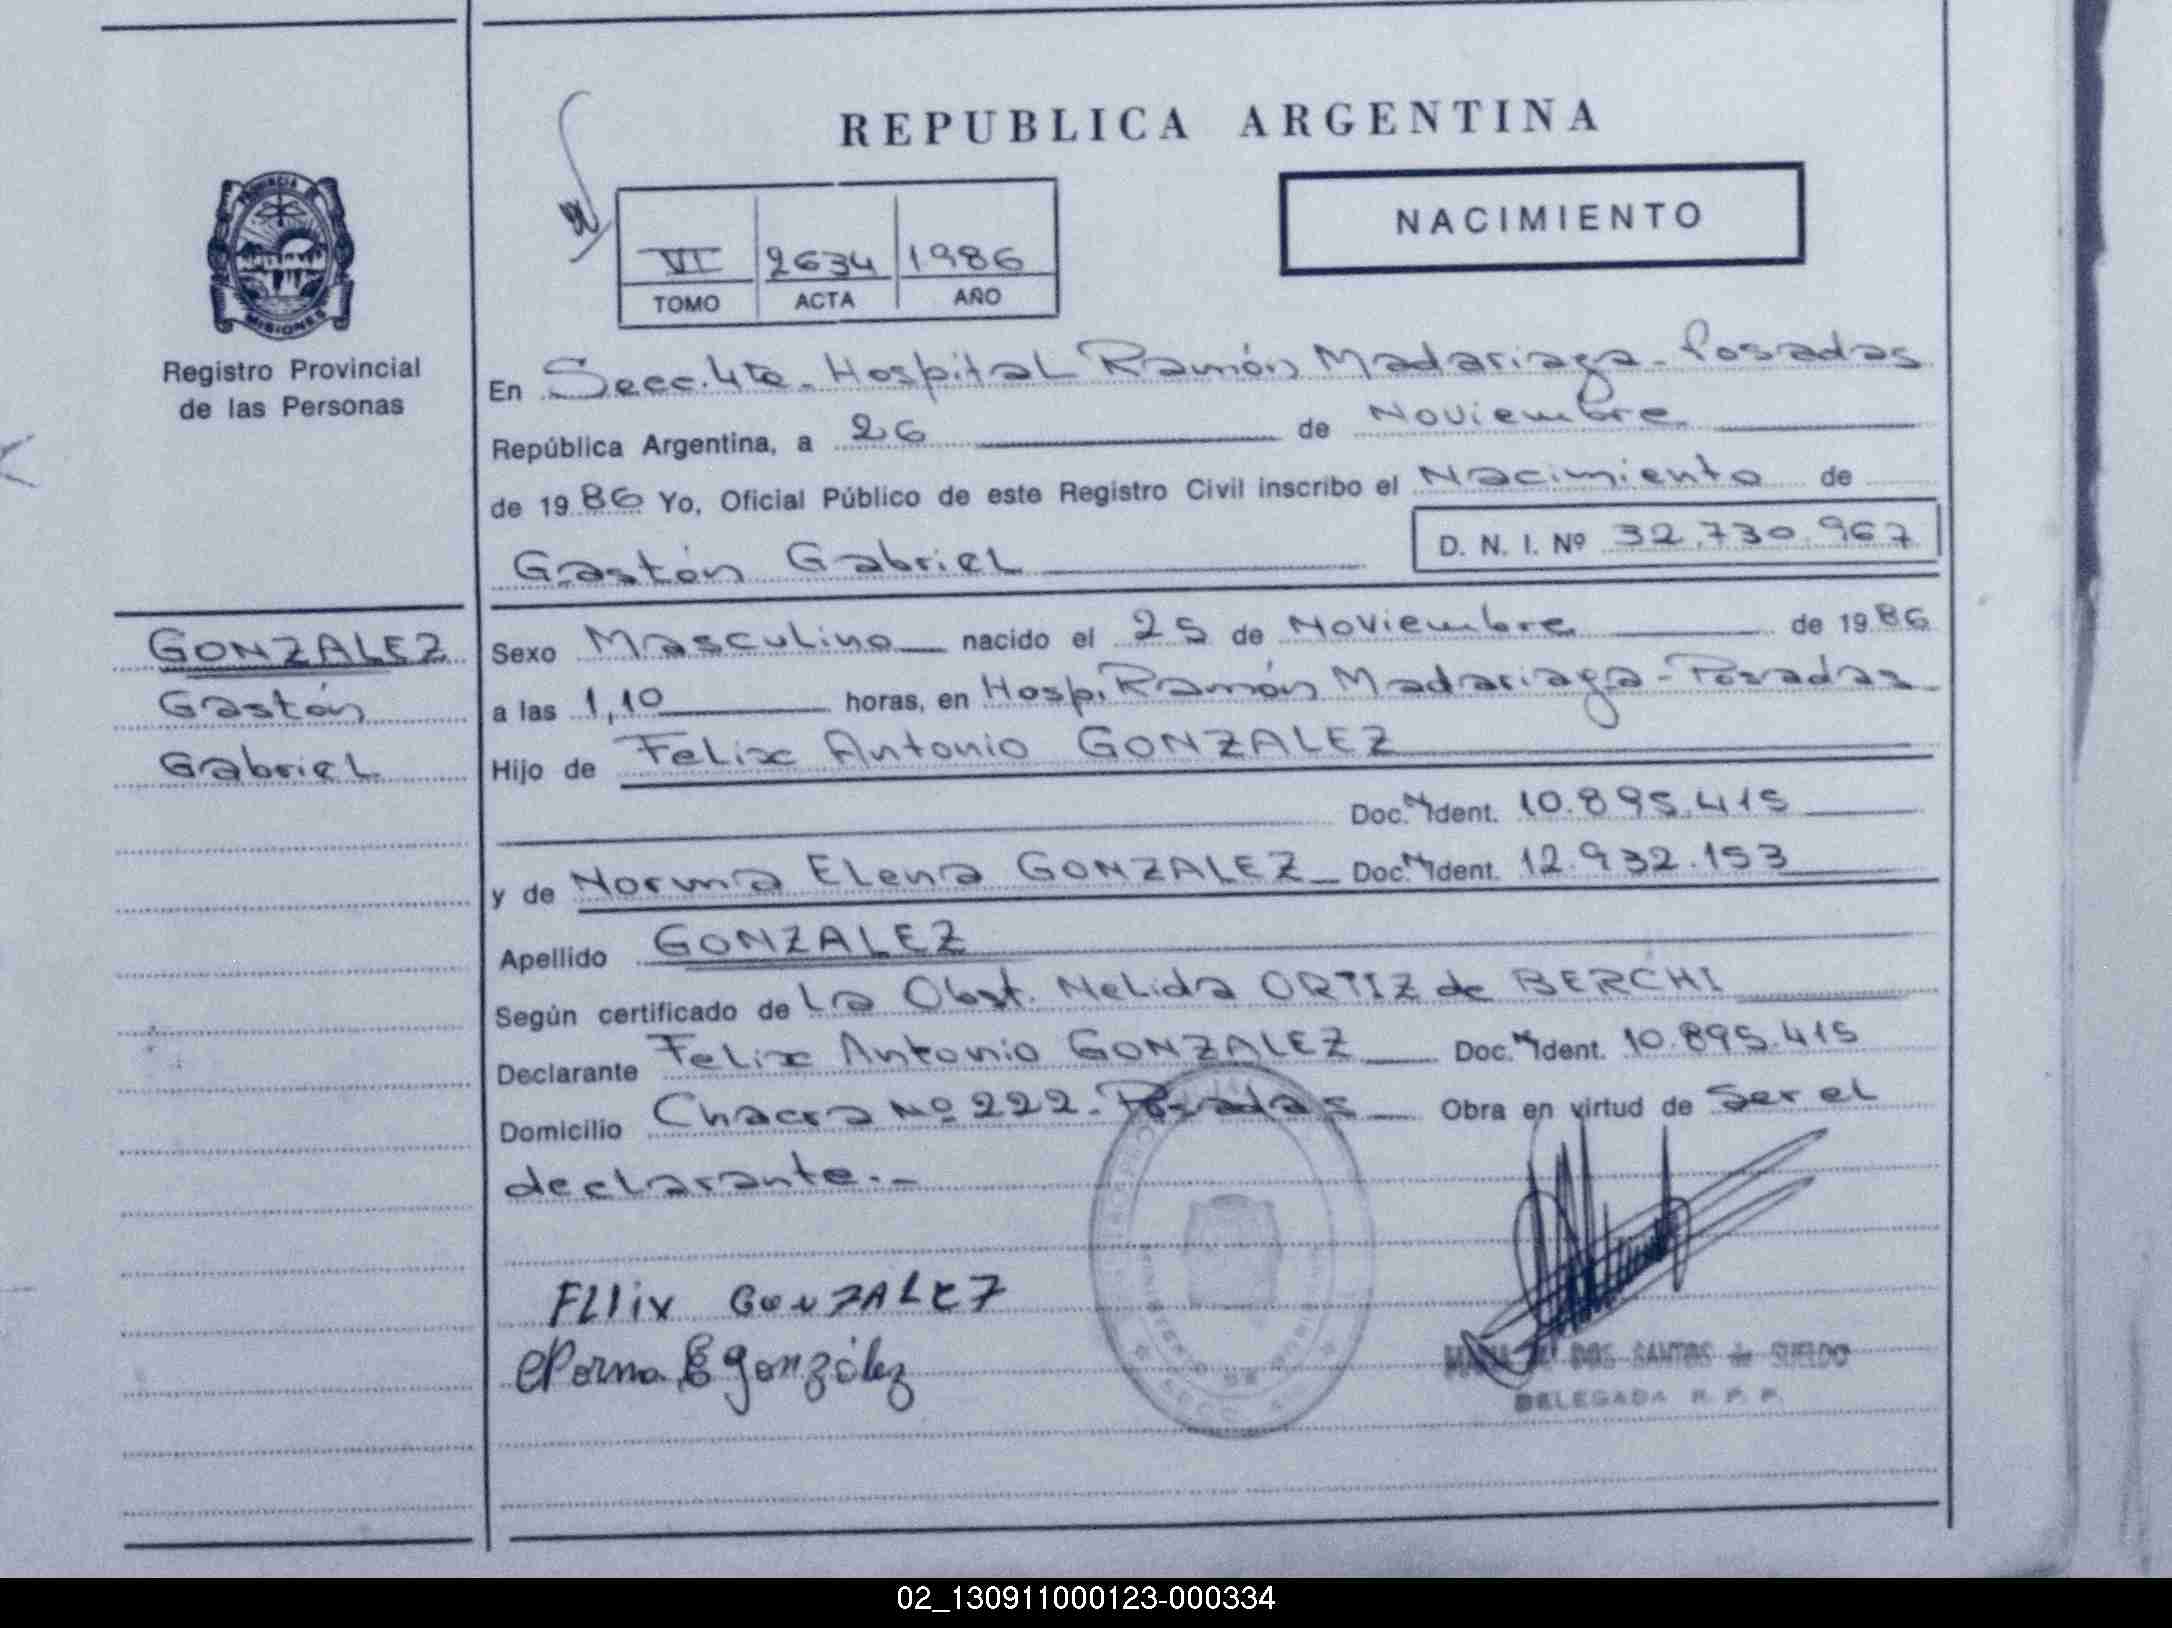 REPUBLICA ARGENTINA
NACIMIENTO
VI 2634 1986
TOMO ACTA AÑO
PROVINCIA DE
MISIONES
Registro Provincial
de las Personas
En Secc. 4ta. Hospital Ramón Madariaga - Posadas
República Argentina, a 26 de Noviembre
de 1986 Yo, Oficial Público de este Registro Civil inscribo el Nacimiento de
Gastón Gabriel D. N. I. Nº 32.730.967
GONZALEZ
Gastón
Gabriel
Sexo Masculino nacido el 25 de Noviembre de 1986
a las 1,10 horas, en Hosp. Ramón Madariaga - Posadas
Hijo de Felix Antonio GONZALEZ
Doc. N Ident. 10.895.415
y de Norma Elena GONZALEZ Doc. N Ident. 12.932.153
Apellido GONZALEZ
Según certificado de La Obst. Nelida ORTIZ de BERCHI
Declarante Felix Antonio GONZALEZ Doc. N Ident. 10.895.415
Domicilio Chacra Nº 222 - Posadas Obra en virtud de Ser el
declarante.-
FLlix GONZALEZ
Norma E González
DOS SANTOS de SUELDO
DELEGADA R. P. P.
02_130911000123-000334